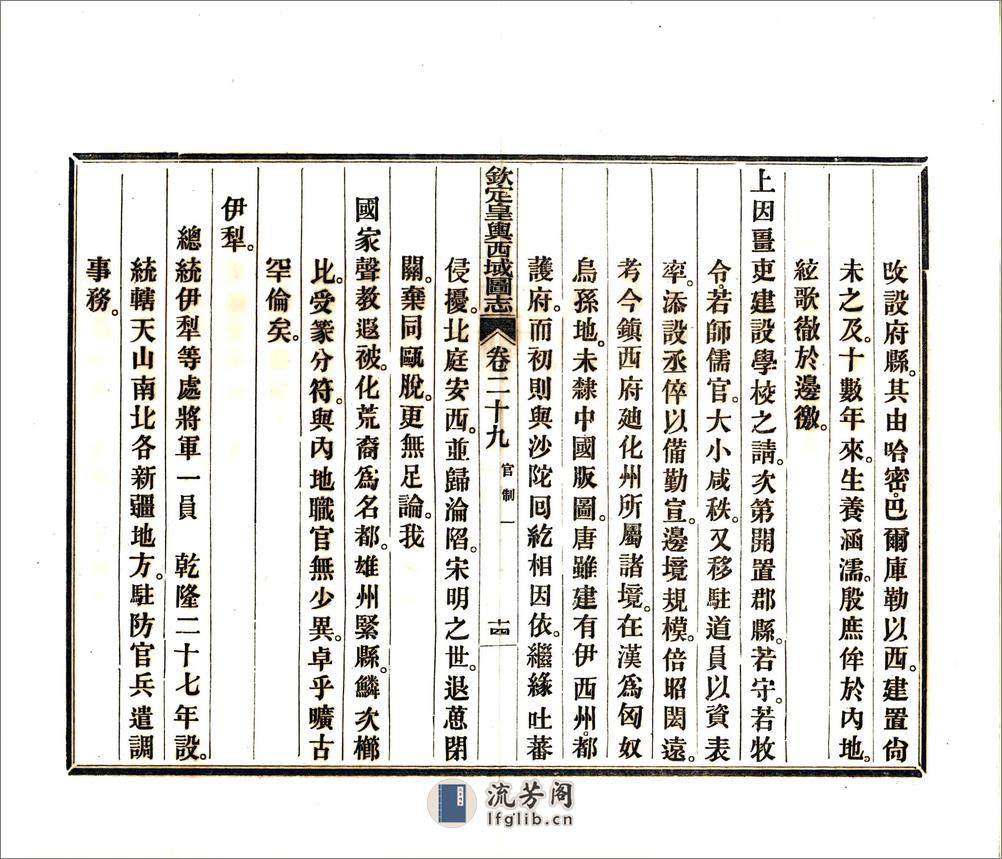 改設府縣。其由哈密。巴爾庫勒以西。建置尙
未之及。十數年來。生養涵濡。殷庶侔於內地。
絃歌徹於邊徼。
上因畺吏建設學校之請。次第開置郡縣。若守。若牧
令。若師儒官。大小咸秩。又移駐道員以資表
率。添設丞倅以備勤宣。邊境規模。倍昭閎遠。
考今鎮西府廸化州所屬諸境。在漢爲匈奴
烏孫地。未隸中國版圖。唐雖建有伊西州。都
護府。而初則與沙陀回紇相因依。繼緣吐蕃
欽定皇輿西域圖志 卷二十九 官制一 十四
侵擾。北庭安西。並歸淪陷。宋明之世。退葸閉
關。棄同甌脫。更無足論。我
國家聲教遐被。化荒裔爲名都。雄州緊縣。鱗次櫛
比。受篆分符。與內地職官無少異。卓乎曠古
罕倫矣。
伊犁。
總統伊犁等處將軍一員 乾隆二十七年設。
統轄天山南北各新疆地方。駐防官兵遣調
事務。
流芳阁
lfglib.cn